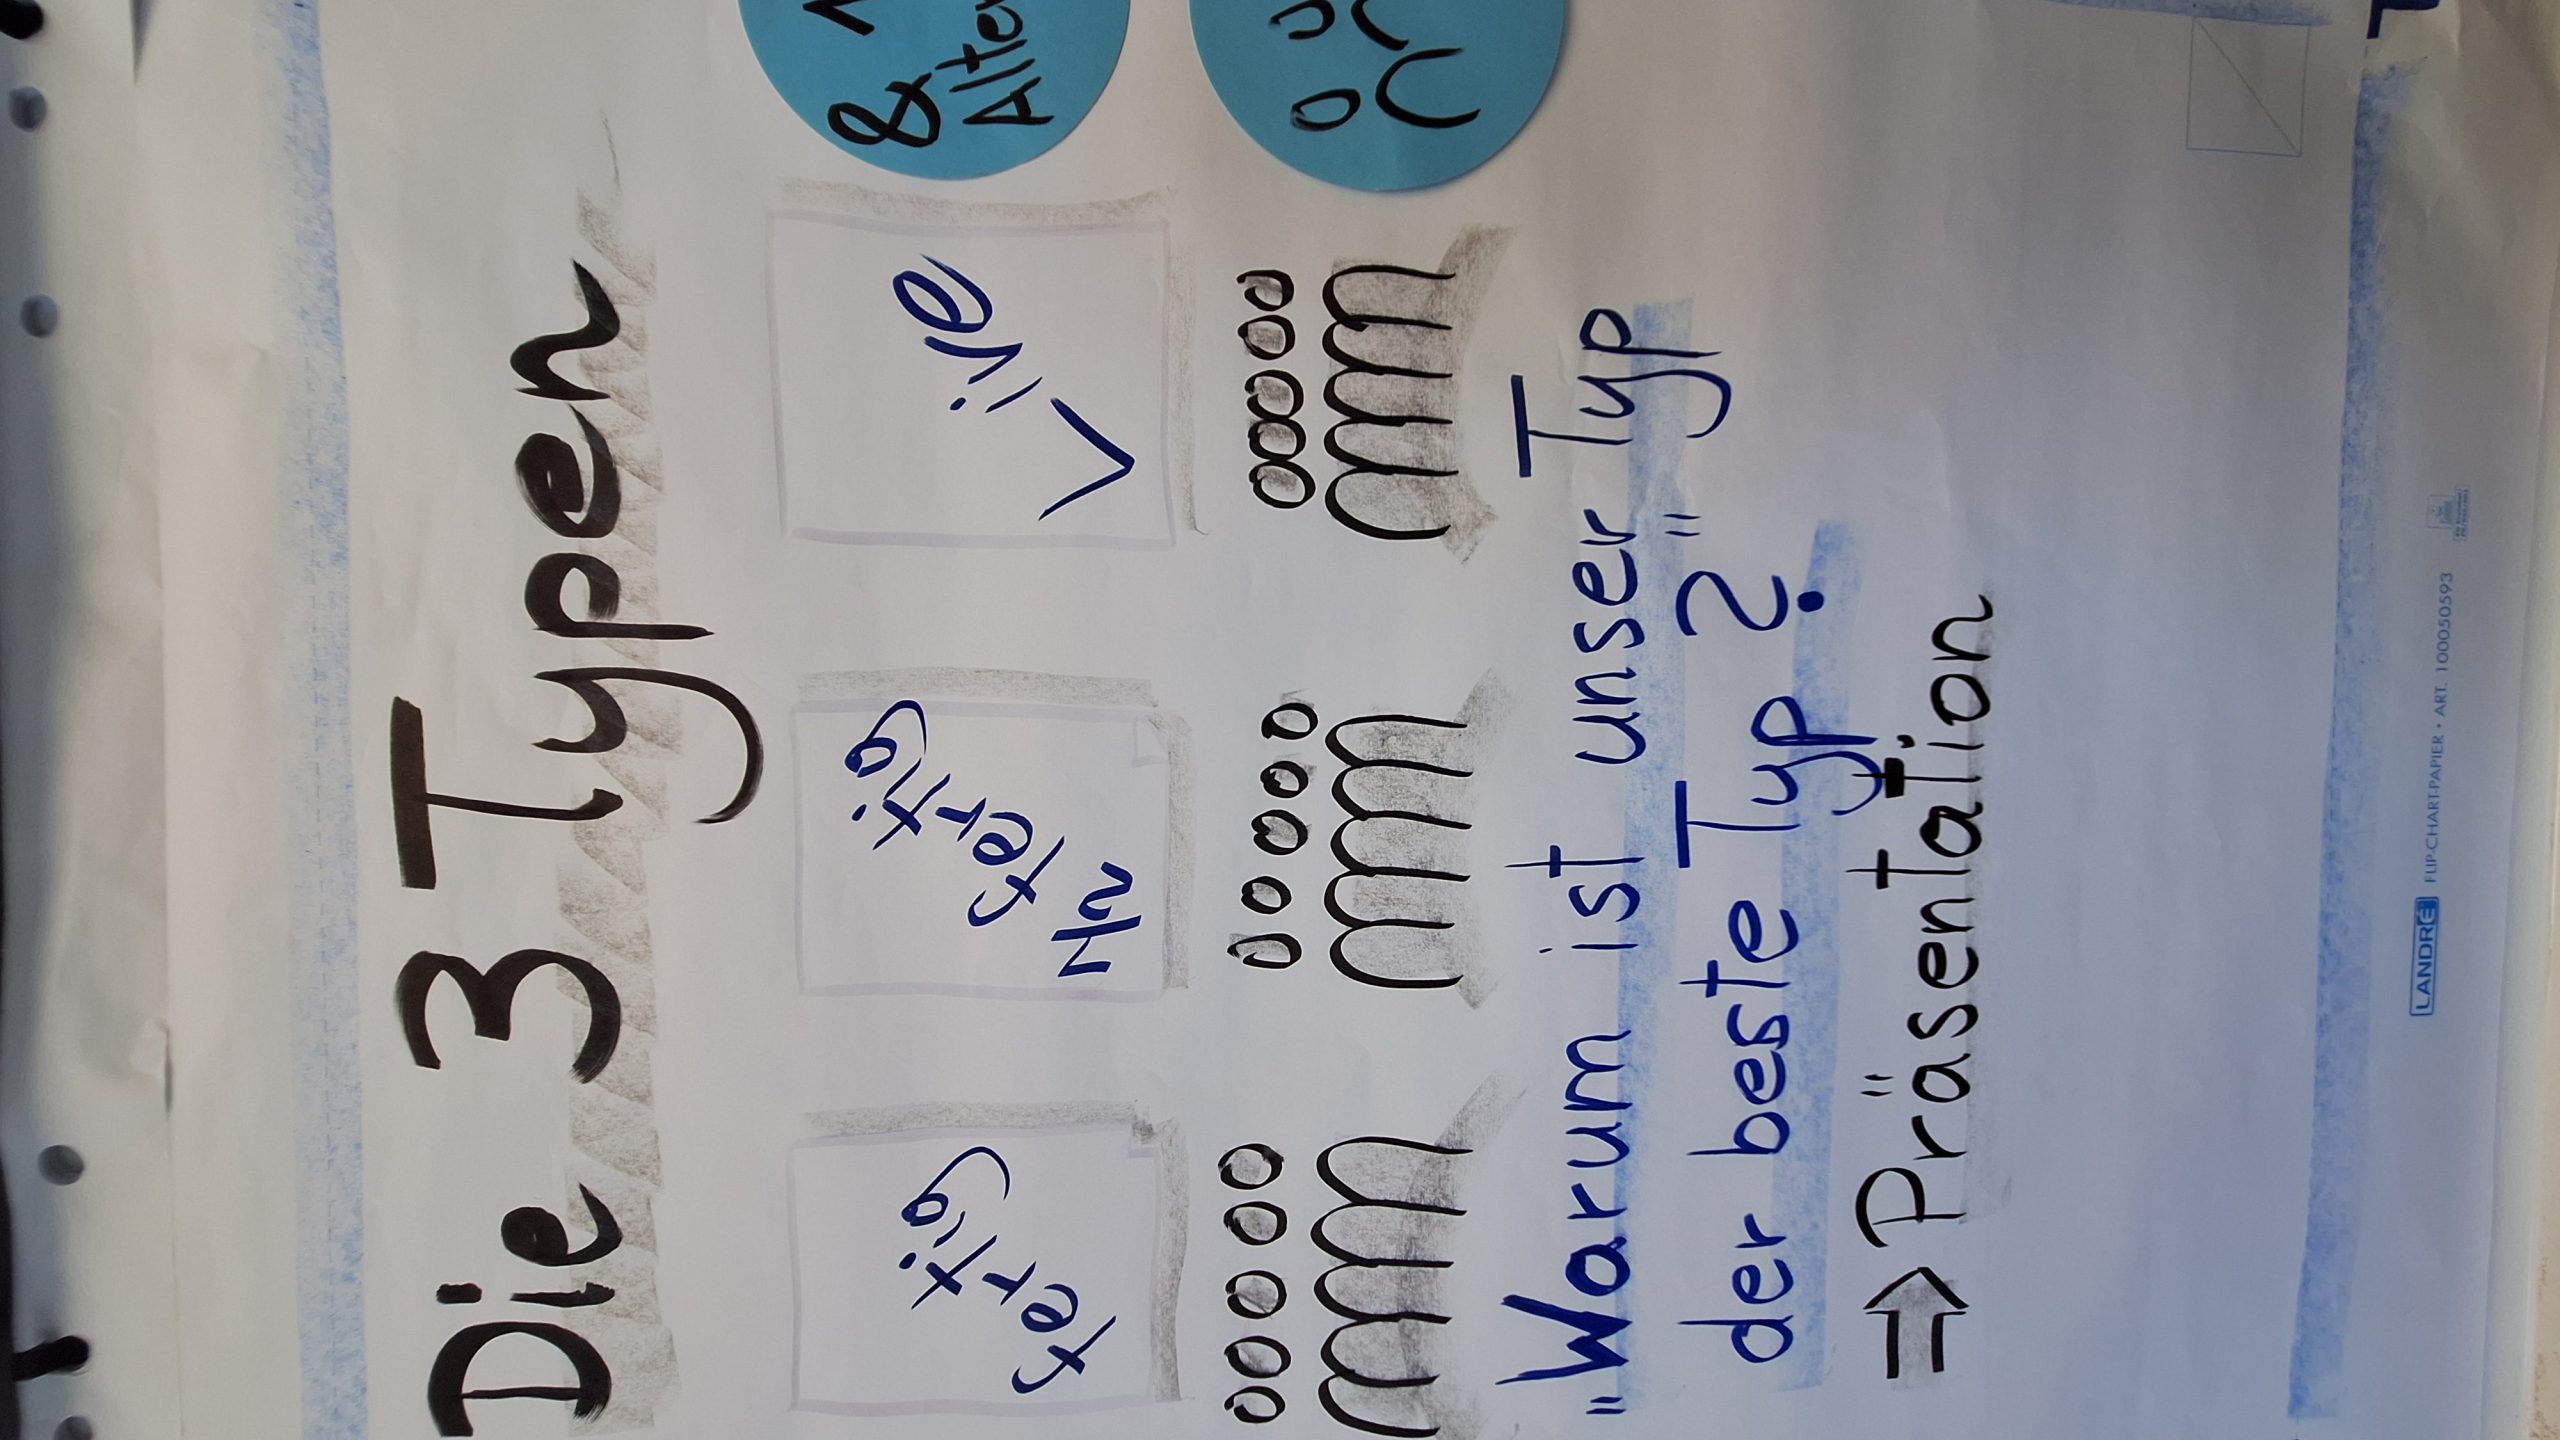 Die 3 Typen
fertig
1/2 fertig
Live
&
"Warum ist unser Typ
der beste Typ?"
⇒ Präsentation
LANDRÉ FLIP-CHART-PAPIER • ART. 100050593